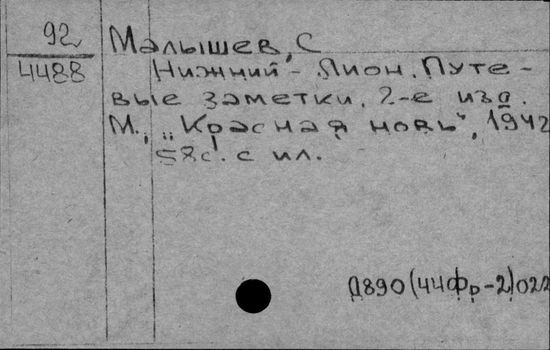 92
4488
Малышев, С
Нижний - Лион. Путе-
вые заметки. 2-е изд.
М., „Красная новь", 1942
58с. с ил.
Д890(44Фр-2)022